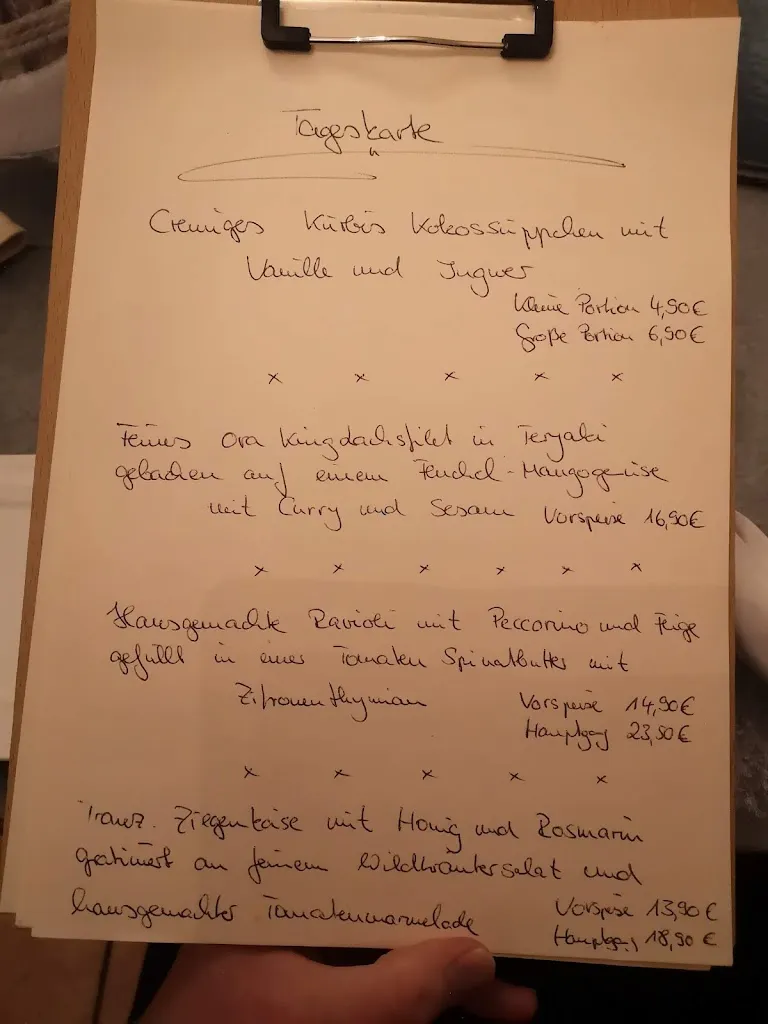 Tageskarte
Cremiges Kürbis Kokossüppchen mit
Vanille und Ingwer
Kleine Portion 4,90€
Große Portion 6,90€
x x x x x
Feines Ora Kingdachsfilet in Teryaki
gebachen auf einem Fenchel-Mangogemüse
mit Curry und Sesam Vorspeise 16,90€
x x x x x x
Hausgemachte Ravioli mit Peccorino und Feige
gefüllt in einer Tomaten Spinatbutter mit
Zitronenthymian Vorspeise 14,90€
Hauptgang 23,50€
x x x x x
Franz. Ziegenkäse mit Honig und Rosmarin
gratiniert an feinem Wildkräutersalat und
hausgemachter Tomatenmarmelade Vorspeise 13,90€
Hauptgang 18,90€